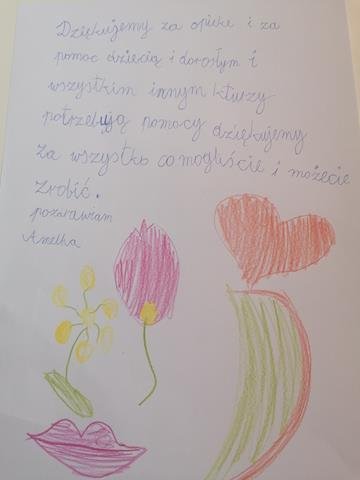 Dziękujemy za opiekę i za
pomoc dziecią i dorosłym i
wszystkim innym którzy
potrzebują pomocy dziękujemy
za wszystko co mogliście i możecie
zrobić.
pozdrawiam
Amelka